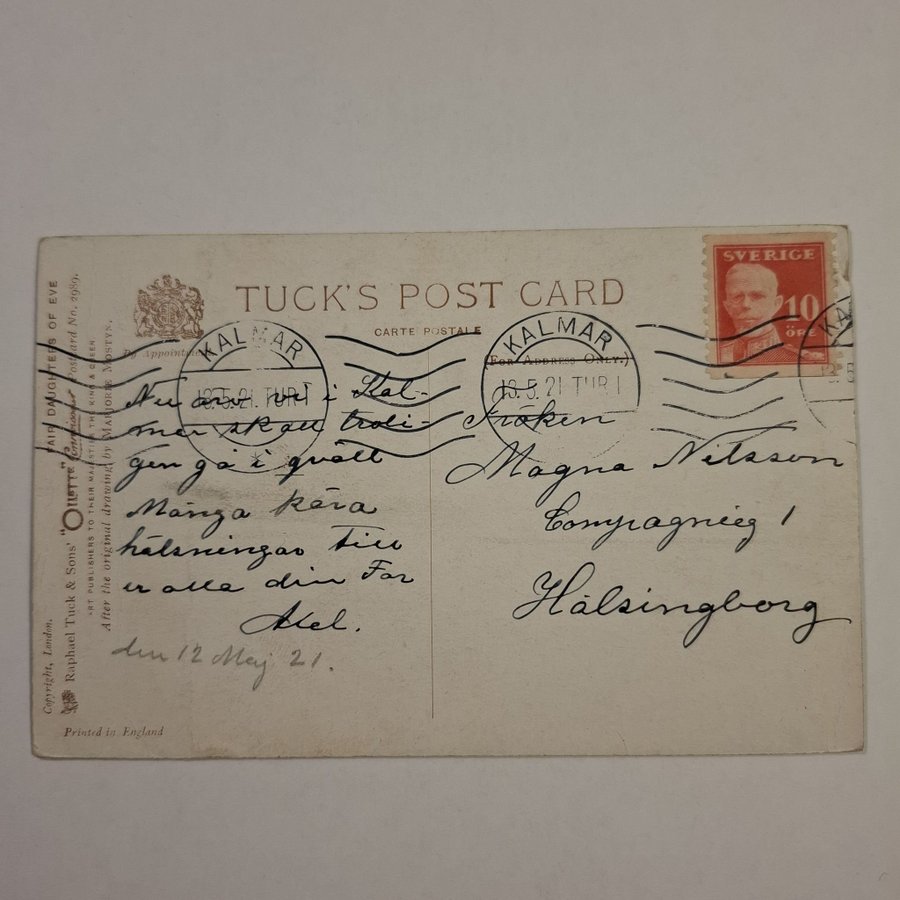 TUCK'S POST CARD
CARTE POSTALE
(FOR ADDRESS ONLY.)
By Appointment
SVERIGE
10
ÖRE
KALMAR
13.5.21 TUR 1
KALMAR
13.5.21 TUR 1
KA
Nu äro vi i Kal-
mar skall troli-
gen gå i qväll
Många kära
hälsningar till
er alla din Far
Axel.
den 12 Maj 21.
Fröken
Magna Nilsson
Compagnieg 1
Hälsingborg
FAIR DAUGHTERS OF EVE
Raphael Tuck & Sons' "OILETTE" Connoisseur Postcard No. 2989.
ART PUBLISHERS TO THEIR MAJESTIES THE KING & QUEEN
After the original drawing by MARJORIE MOSTYN.
Copyright, London.
Printed in England